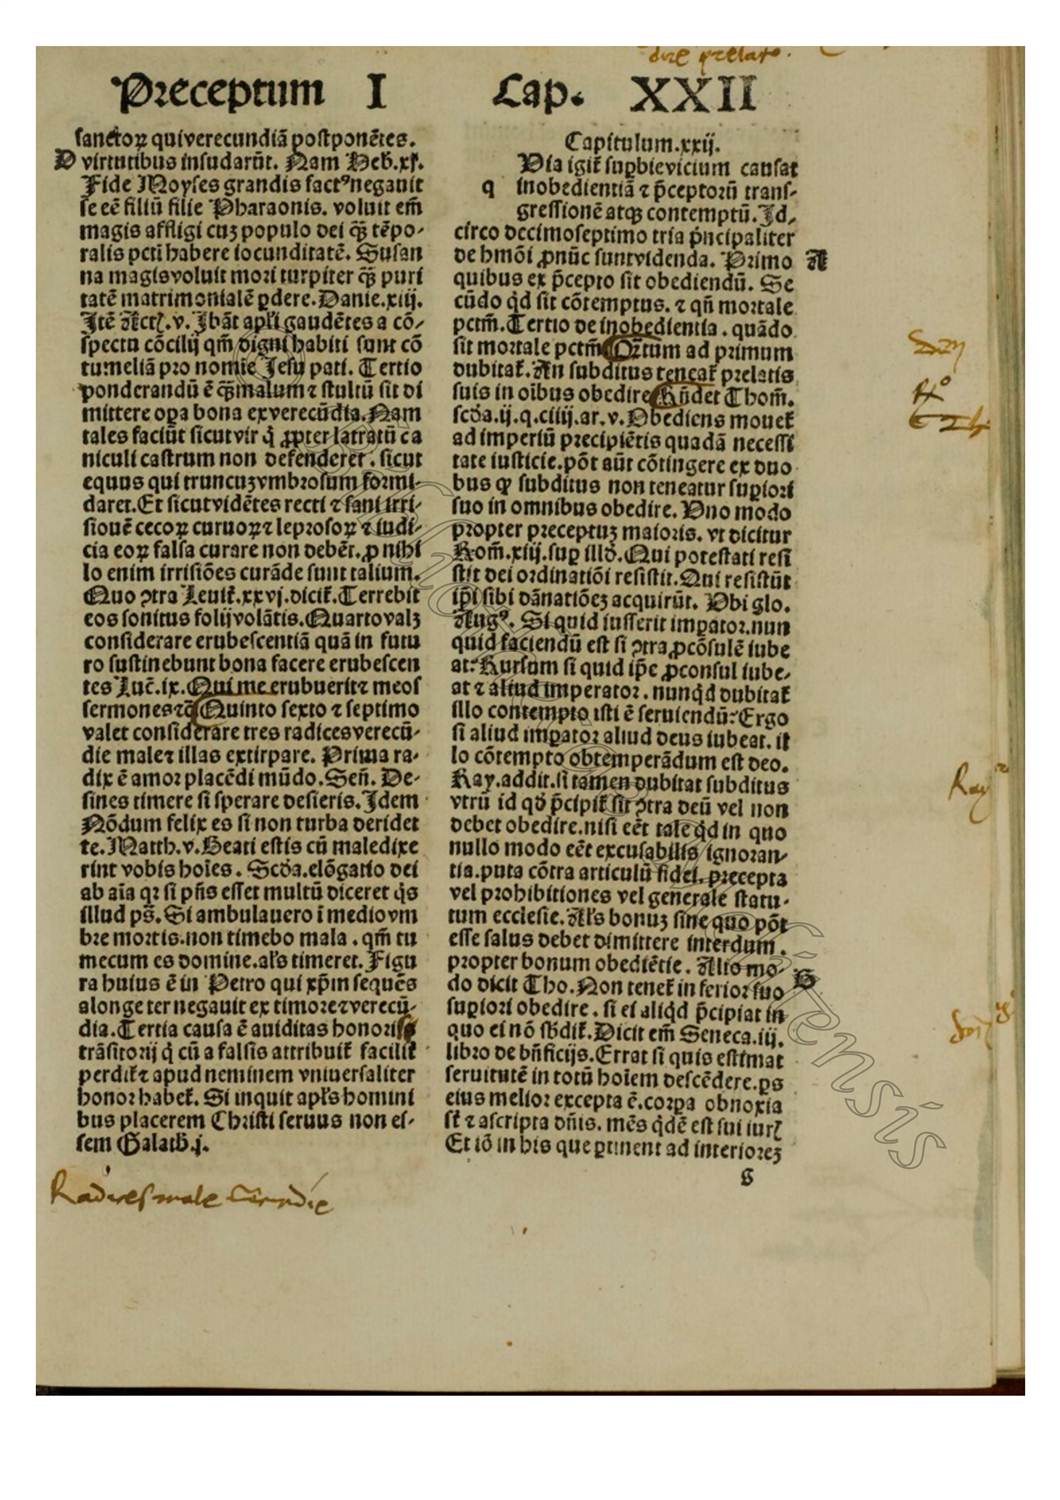 Preceptum I
sanctoꝝ qui verecundiā postponētes.
D virtutibus insudarūt. Nam Heb. xj.
Fide Moyses grandis factꝰ negauit
se eē filiū filie Pharaonis. voluit em̄
magis affligi cuꝫ populo dei qꝫ̄ tēpo-
ralis pcti habere iocunditatē. Susan
na magis voluit mori turpiter qꝫ̄ puri
tatē matrimonialē ꝑdere. Danie. xiij.
Itē Actꝭ. v. Ibāt apl'i gaudētes a cō-
spectu cōcilij qm̄ digni habiti sunt cō
tumeliā pro nomie Jesu pati. Tertio
ponderandū ē qꝫ̄ malum ⁊ stultū sit di
mittere oꝑa bona ex verecūdia. Nam
tales faciūt sicut vir q̇ ꝓpter latratū ca
niculi castrum non defenderet. sicut
equus qui truncuꝫ vmbrosum formi-
daret. Et sicut vidētes recti ⁊ sani irri-
sionē cecoꝝ curuoꝝ ⁊ leprosoꝝ ⁊ iudi-
cia eoꝝ falsa curare non debēt. ꝓ nihi
lo enim irrisiōes curāde sunt talium.
Quo ↄtra Leuit̄. xxvj. dicit̄. Terrebit
eos sonitus folij volātis. Quarto valꝫ
considerare erubescentiā quā in futu
ro sustinebunt bona facere erubescen
tes Luc̄. ix. Qui me erubuerit ⁊ meos
sermones ⁊c̄ Quinto sexto ⁊ septimo
valet considerare tres radices verecū-
die male ⁊ illas extirpare. Prima ra-
dix ē amor placēdi mūdo. Sen̄. De-
sines timere si sperare desieris. Idem
Nōdum felix es si non turba deridet
te. Matth. v. Beati estis cū maledixe
rint vobis hoīes. Scd̄a. elōgatio dei
ab aīa qꝛ si pn̄s esset multū diceret q̇s
illud ps̄. Si ambulauero ī medio vm
bre mortis. non timebo mala. qm̄ tu
mecum es domine. al's timeret. Figu
ra huius ē in Petro qui xp̄m sequēs
a longe ter negauit ex timore ⁊ verecū-
dia. Tertia causa ē auiditas honoris
trāsitorij q̇ cū a falsis attribuit̄ facilit̄
perdit̄ ⁊ apud neminem vniuersaliter
honor habet̄. Si inquit apl's homini
bus placerem Christi seruus non es-
sem Galath. j.
Radices male
Cap. XXII
Capitulum. xxij.
q Via igit̄ suꝑbie vicium causat
inobedientiā ⁊ p̄ceptorū trans-
gressionē atqꝫ contemptū. Id-
circo decimoseptimo tria p̄ncipaliter
de hmōi ꝓnūc sunt videnda. Primo A
quibus ex p̄cepto sit obediendū. Se
cūdo qd̄ sit cōtemptus. ⁊ qn̄ mortale
pctm̄. Tertio de inobedientia. quādo
sit mortale pctm̄ Qr̄tum ad primum
dubitat̄. An subditus teneat̄ prelatis
suis in oībus obedire Rn̄det Thom̄.
scd̄a. ij. q. ciiij. ar. v. Obediens mouet̄
ad imperiū precipiētis quadā necessi
tate iusticie. pōt aūt cōtingere ex duo
bus qꝙ subditus non teneatur suꝑiori
suo in omnibus obedire. Uno modo
propter preceptuꝫ maioris. vt dicitur
Rom̄. xiij. suꝑ illd̄. Qui potestati resi
stit dei ordinatiōi resistit. Qui resistūt
ip̄i sibi dānatiōeꝫ acquirūt. Ubi glo.
Augꝰ. Si quid iusserit imꝑator. nun
quid faciendū est si ↄtra ꝓcōsulē iube
at: Rursum si quid ip̄e ꝓconsul iube-
at ⁊ aliud imperator. nunqd̄ dubitat̄
illo contempto isti ē seruiendū: Ergo
si aliud imꝑator aliud deus iubeat. il
lo cōtempto obtemperādum est deo.
Ray. addit. si tamen dubitat subditus
vtrū id qd̄ p̄cipit̄ sit ↄtra deū vel non
debet obedire. nisi eēt tale qd̄ in quo
nullo modo eēt excusabilis ignoran-
tia. puta cōtra articulū fidei. precepta
vel prohibitiones vel generale statu-
tum ecclesie. Al's bonuꝫ sine quo pōt
esse salus debet dimittere interdum.
propter bonum obediētie. Alio mo- B
do dicit Tho. Non tenet̄ inferior suo
suꝑiori obedire. si ei aliqd̄ p̄cipiat in
quo ei nō sbd̄it̄. Dicit em̄ Seneca. iij.
libro de bn̄ficijs. Errat si quis estimat
seruitutē in totū hoīem descēdere. ꝑs
eius melior excepta ē. corꝑa obnoxia
st̄ ⁊ ascripta dn̄is. mēs qd̄ē est sui iurꝭ
Et iō in his que ꝑtinent ad interioreꝫ
s
Ray